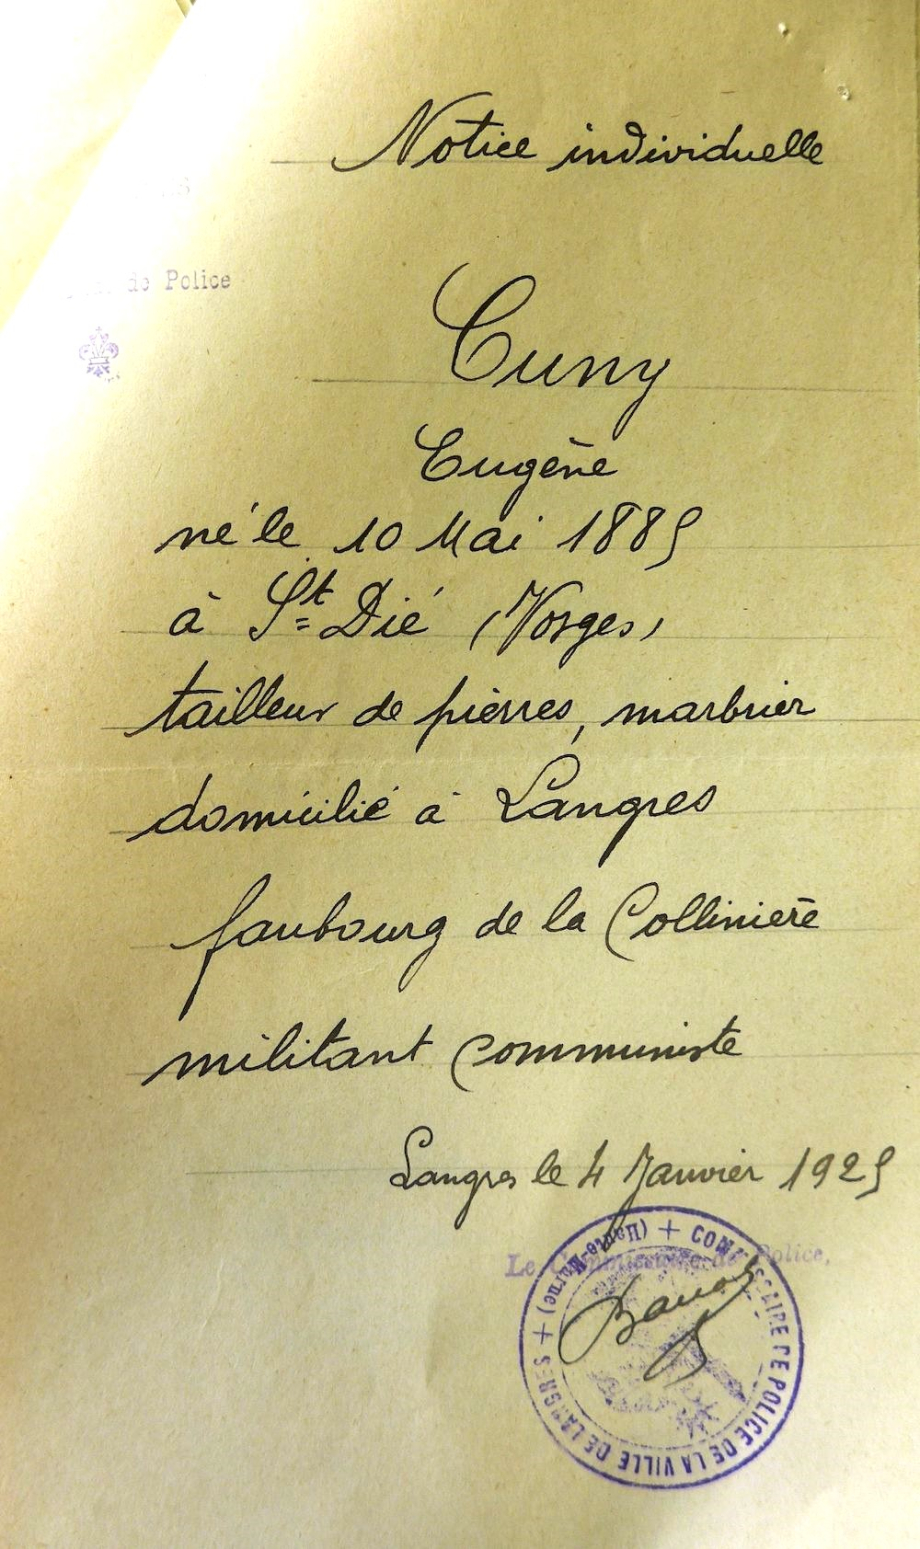 Notice individuelle
de Police
Cuny
Eugène
né le 10 Mai 1885
à St Dié (Vosges)
tailleur de pierres, marbrier
domicilié à Langres
faubourg de la Collinière
militant communiste
Langres le 4 Janvier 1925
Le Commissaire de Police,
COMMISSAIRE DE POLICE DE LA VILLE DE LANGRES + (Haute-Marne) +